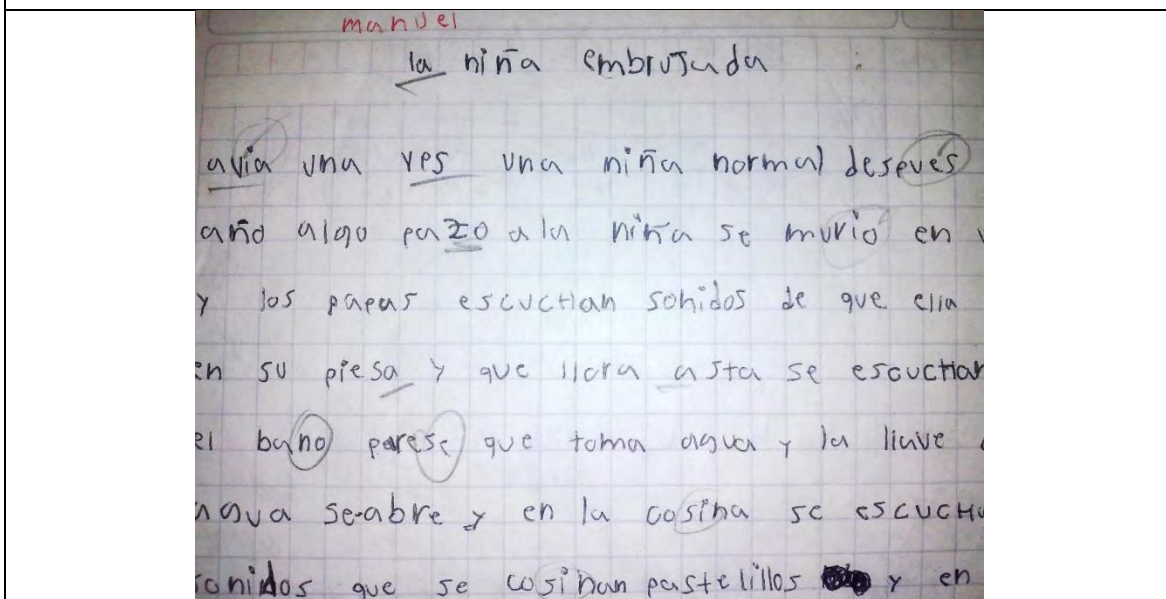 manuel
la niña embrujada
avia una ves una niña normal despues
año algo pazo a la niña se murio en
y los papas escuchan sonidos de que ella
en su piesa y que llora asta se escuchan
el bano parese que toma agua y la llave
agua se abre y en la cosina se escucha
sonidos que se cosinan pastelillos y en